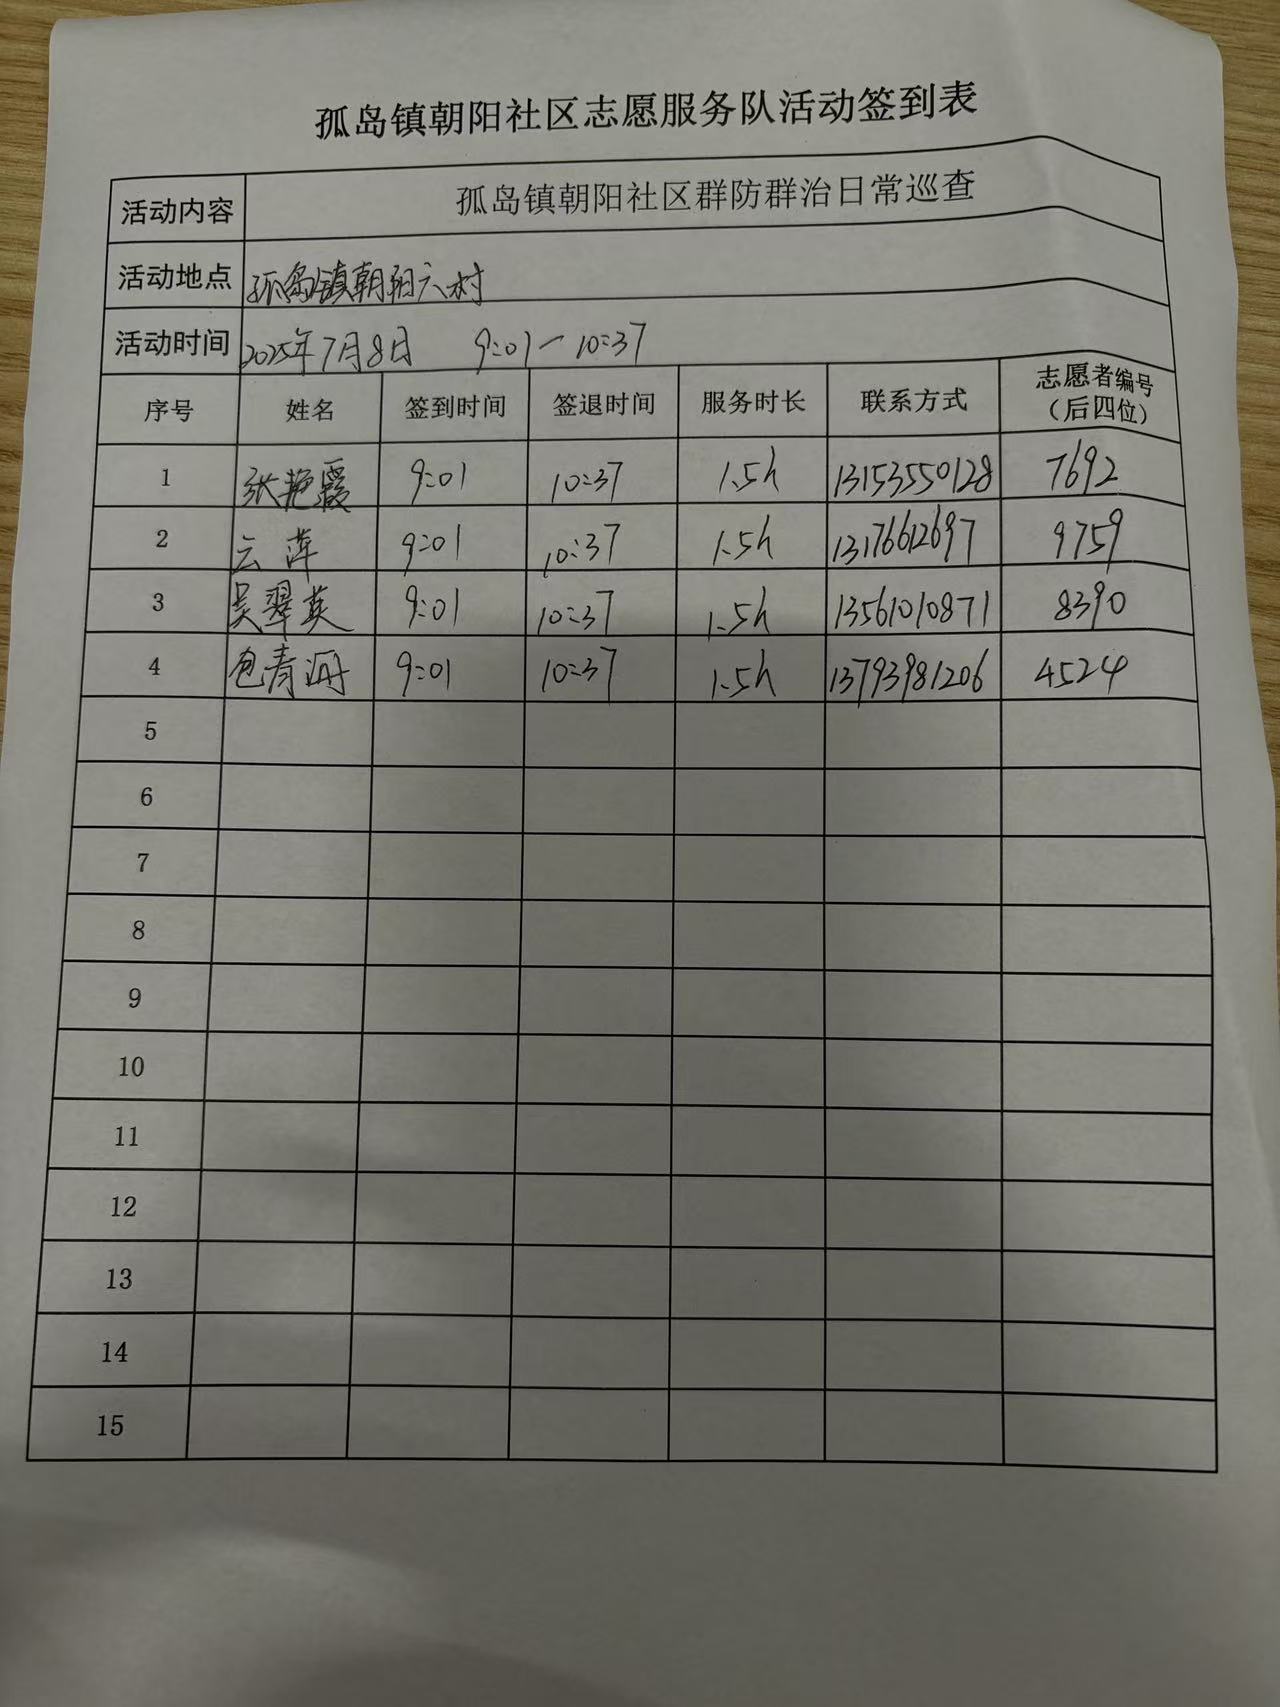 孤岛镇朝阳社区志愿服务队活动签到表
活动内容 孤岛镇朝阳社区群防群治日常巡查
活动地点 孤岛镇朝阳六村
活动时间 2025年7月8日 9:01-10:37
序号 姓名 签到时间 签退时间 服务时长 联系方式 志愿者编号（后四位）
1 张艳霞 9:01 10:37 1.5h 13153550128 7692
2 云萍 9:01 10:37 1.5h 13176612697 9759
3 吴翠英 9:01 10:37 1.5h 13561010871 8390
4 包青 9:01 10:37 1.5h 13793981206 4524
5
6
7
8
9
10
11
12
13
14
15